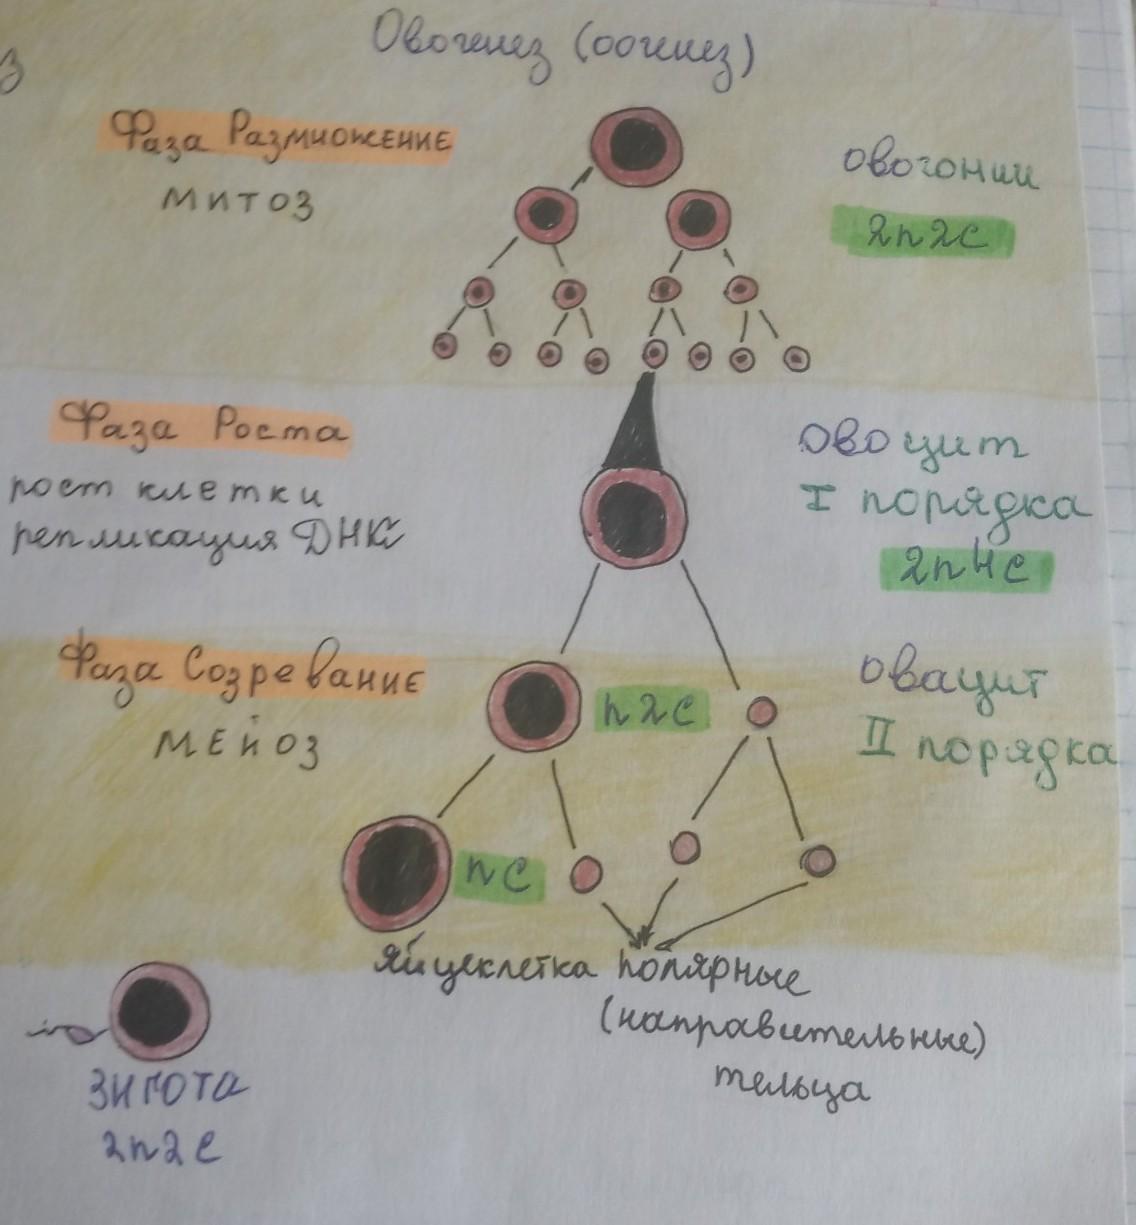 з
Овогенез (оогенез)
Фаза Размножение
митоз
овогонии
2n2c
Фаза Роста
рост клетки
репликация ДНК
овоцит
I порядка
2n4c
Фаза Созревание
мейоз
n2c
овацит
II порядка
nc
яйцеклетка
полярные
(направительные)
тельца
зигота
2n2c